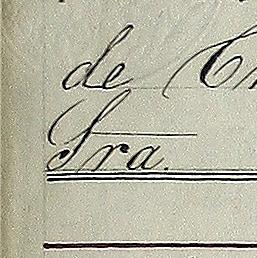 de
Sra.